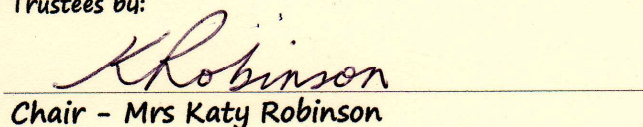 Trustees by:
KRobinson
Chair - Mrs Katy Robinson